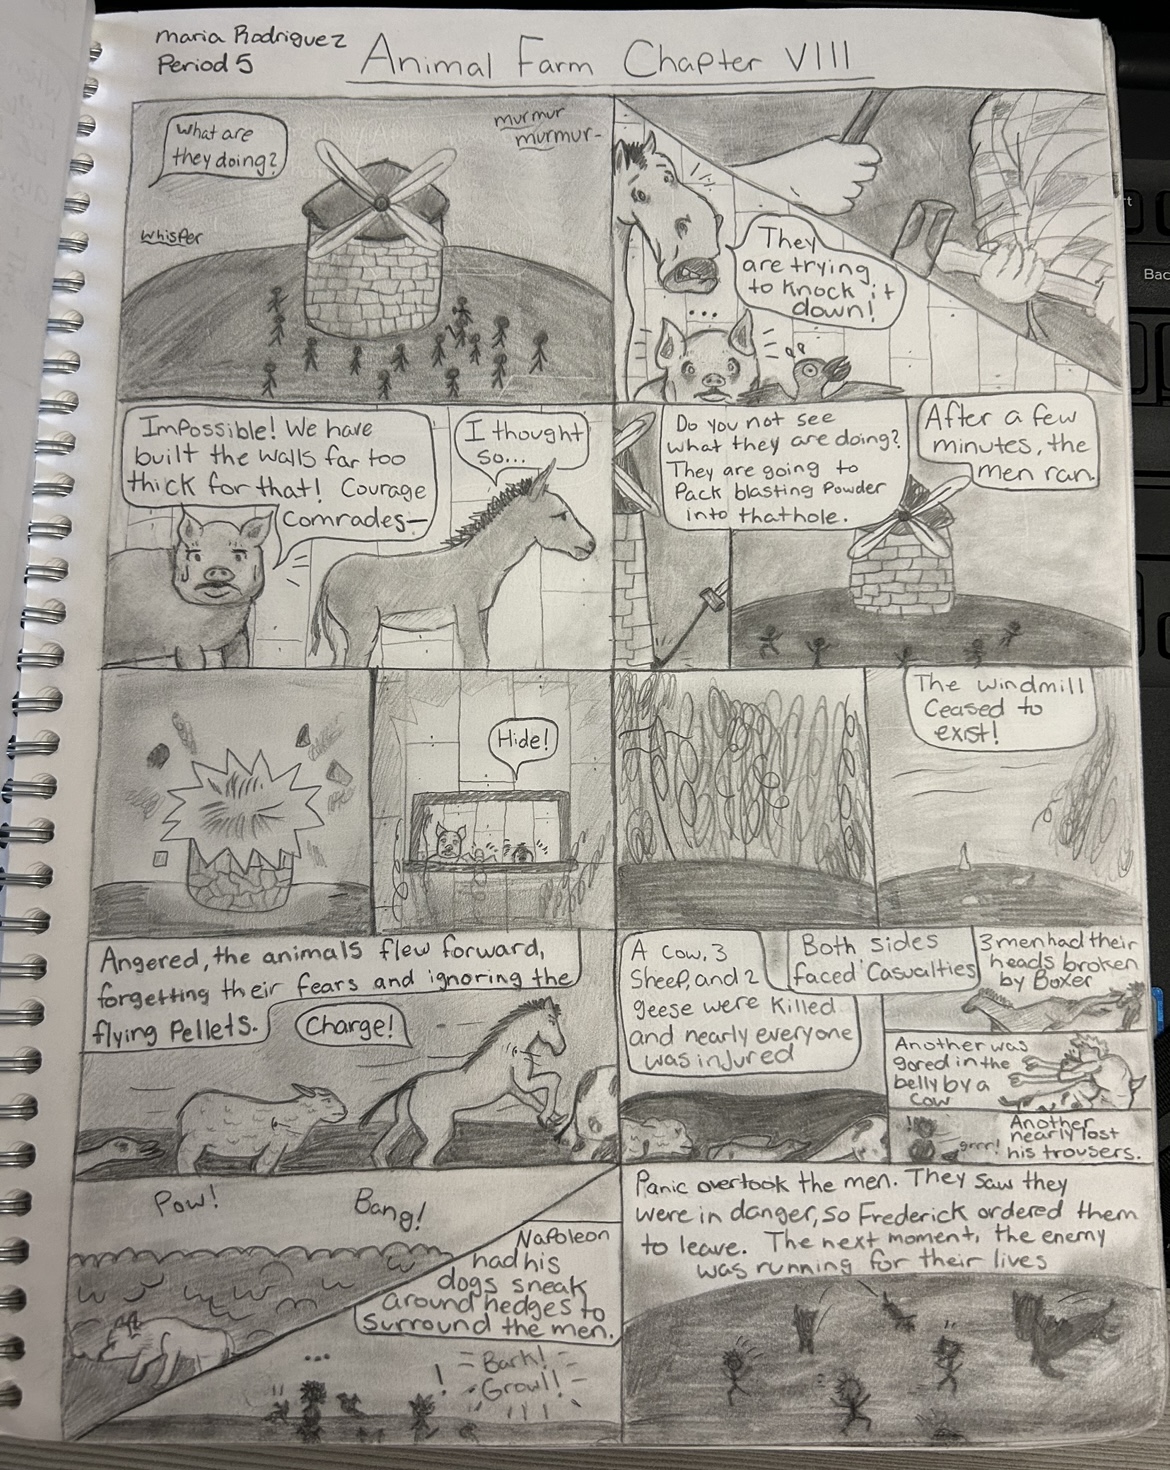 maria Rodriguez
Period 5
Animal Farm Chapter VIII
What are
they doing?
murmur
murmur-
whisper
They
are trying
to knock it
down!
...
Impossible! We have
built the walls far too
thick for that! Courage
Comrades—
I thought
so...
Do you not see
what they are doing?
They are going to
Pack blasting Powder
into that hole.
After a few
minutes, the
men ran.
Hide!
The windmill
Ceased to
exist!
Angered, the animals flew forward,
forgetting their fears and ignoring the
flying Pellets.
Charge!
A cow, 3
Sheep, and 2
geese were killed
and nearly everyone
was injured
Both sides
faced Casualties
3 men had their
heads broken
by Boxer
Another was
gored in the
belly by a
Cow
Another
nearly lost
his trousers.
grrr!
Pow!
Bang!
Napoleon
had his
dogs sneak
around hedges to
surround the men.
...
!
Bark!
Growl!
Panic overtook the men. They saw they
were in danger, so Frederick ordered them
to leave. The next moment, the enemy
was running for their lives
Bac